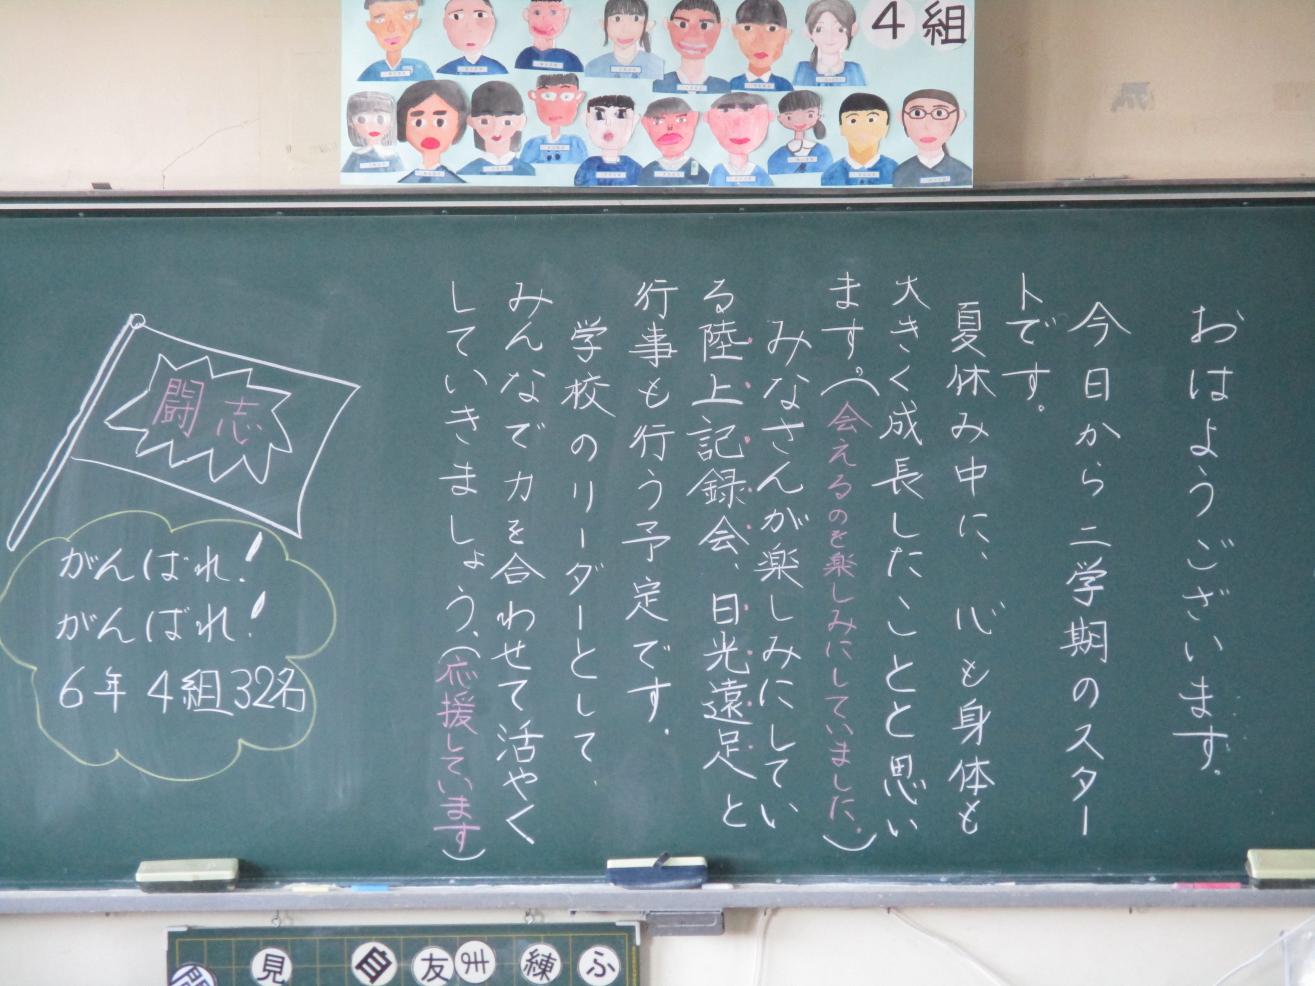 4組
おはようございます。
今日から二学期のスター
トです。
夏休み中に、心も身体も
大きく成長したことと思い
ます。(会えるのを楽しみにしていました。)
みなさんが楽しみにしてい
る陸上記録会、日光遠足と
行事も行う予定です。
学校のリーダーとして、
みんなで力を合わせて活やく
していきましょう。(応援しています)
闘志
がんばれ!
がんばれ!
6年4組32名
見
自
友
練
ふ